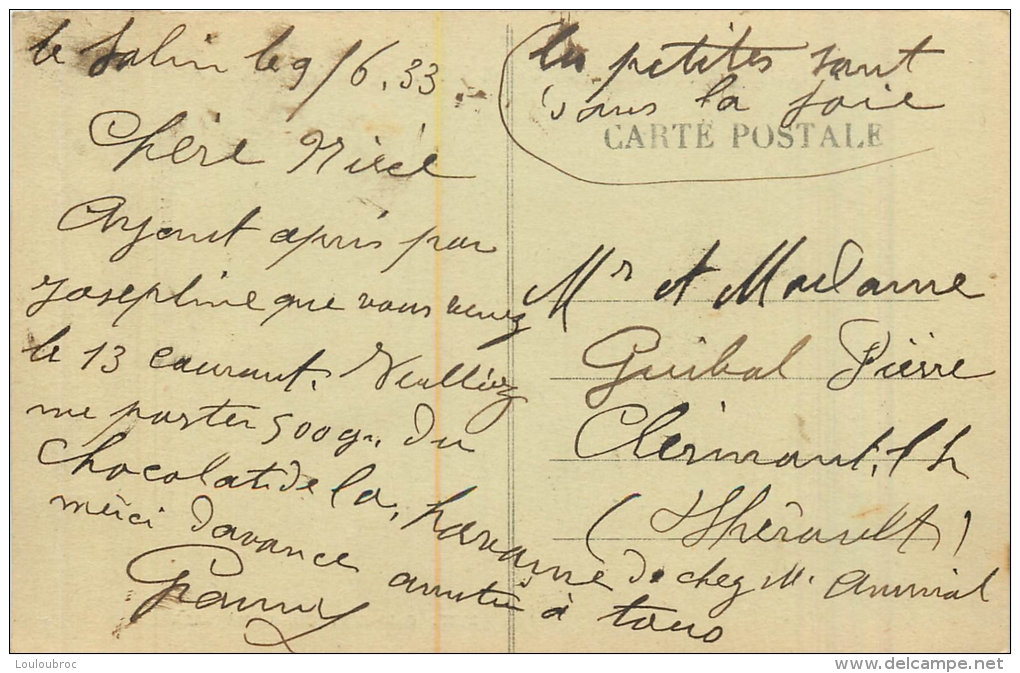 le Salin le 9/6.33
Chère Nièce
Ayant apris par
Josephine que vous venez
le 13 courant. Veulliez
me porter 500 gr. du
Chocolat de la havanne de chez Mr
merci davance amitié à tous
les petites sont
dans la joie
CARTE POSTALE
Mr et Madame
Guibal Pierre
Clermont. l'h
(L'hérault)
Louloubroc
www.delcampe.net